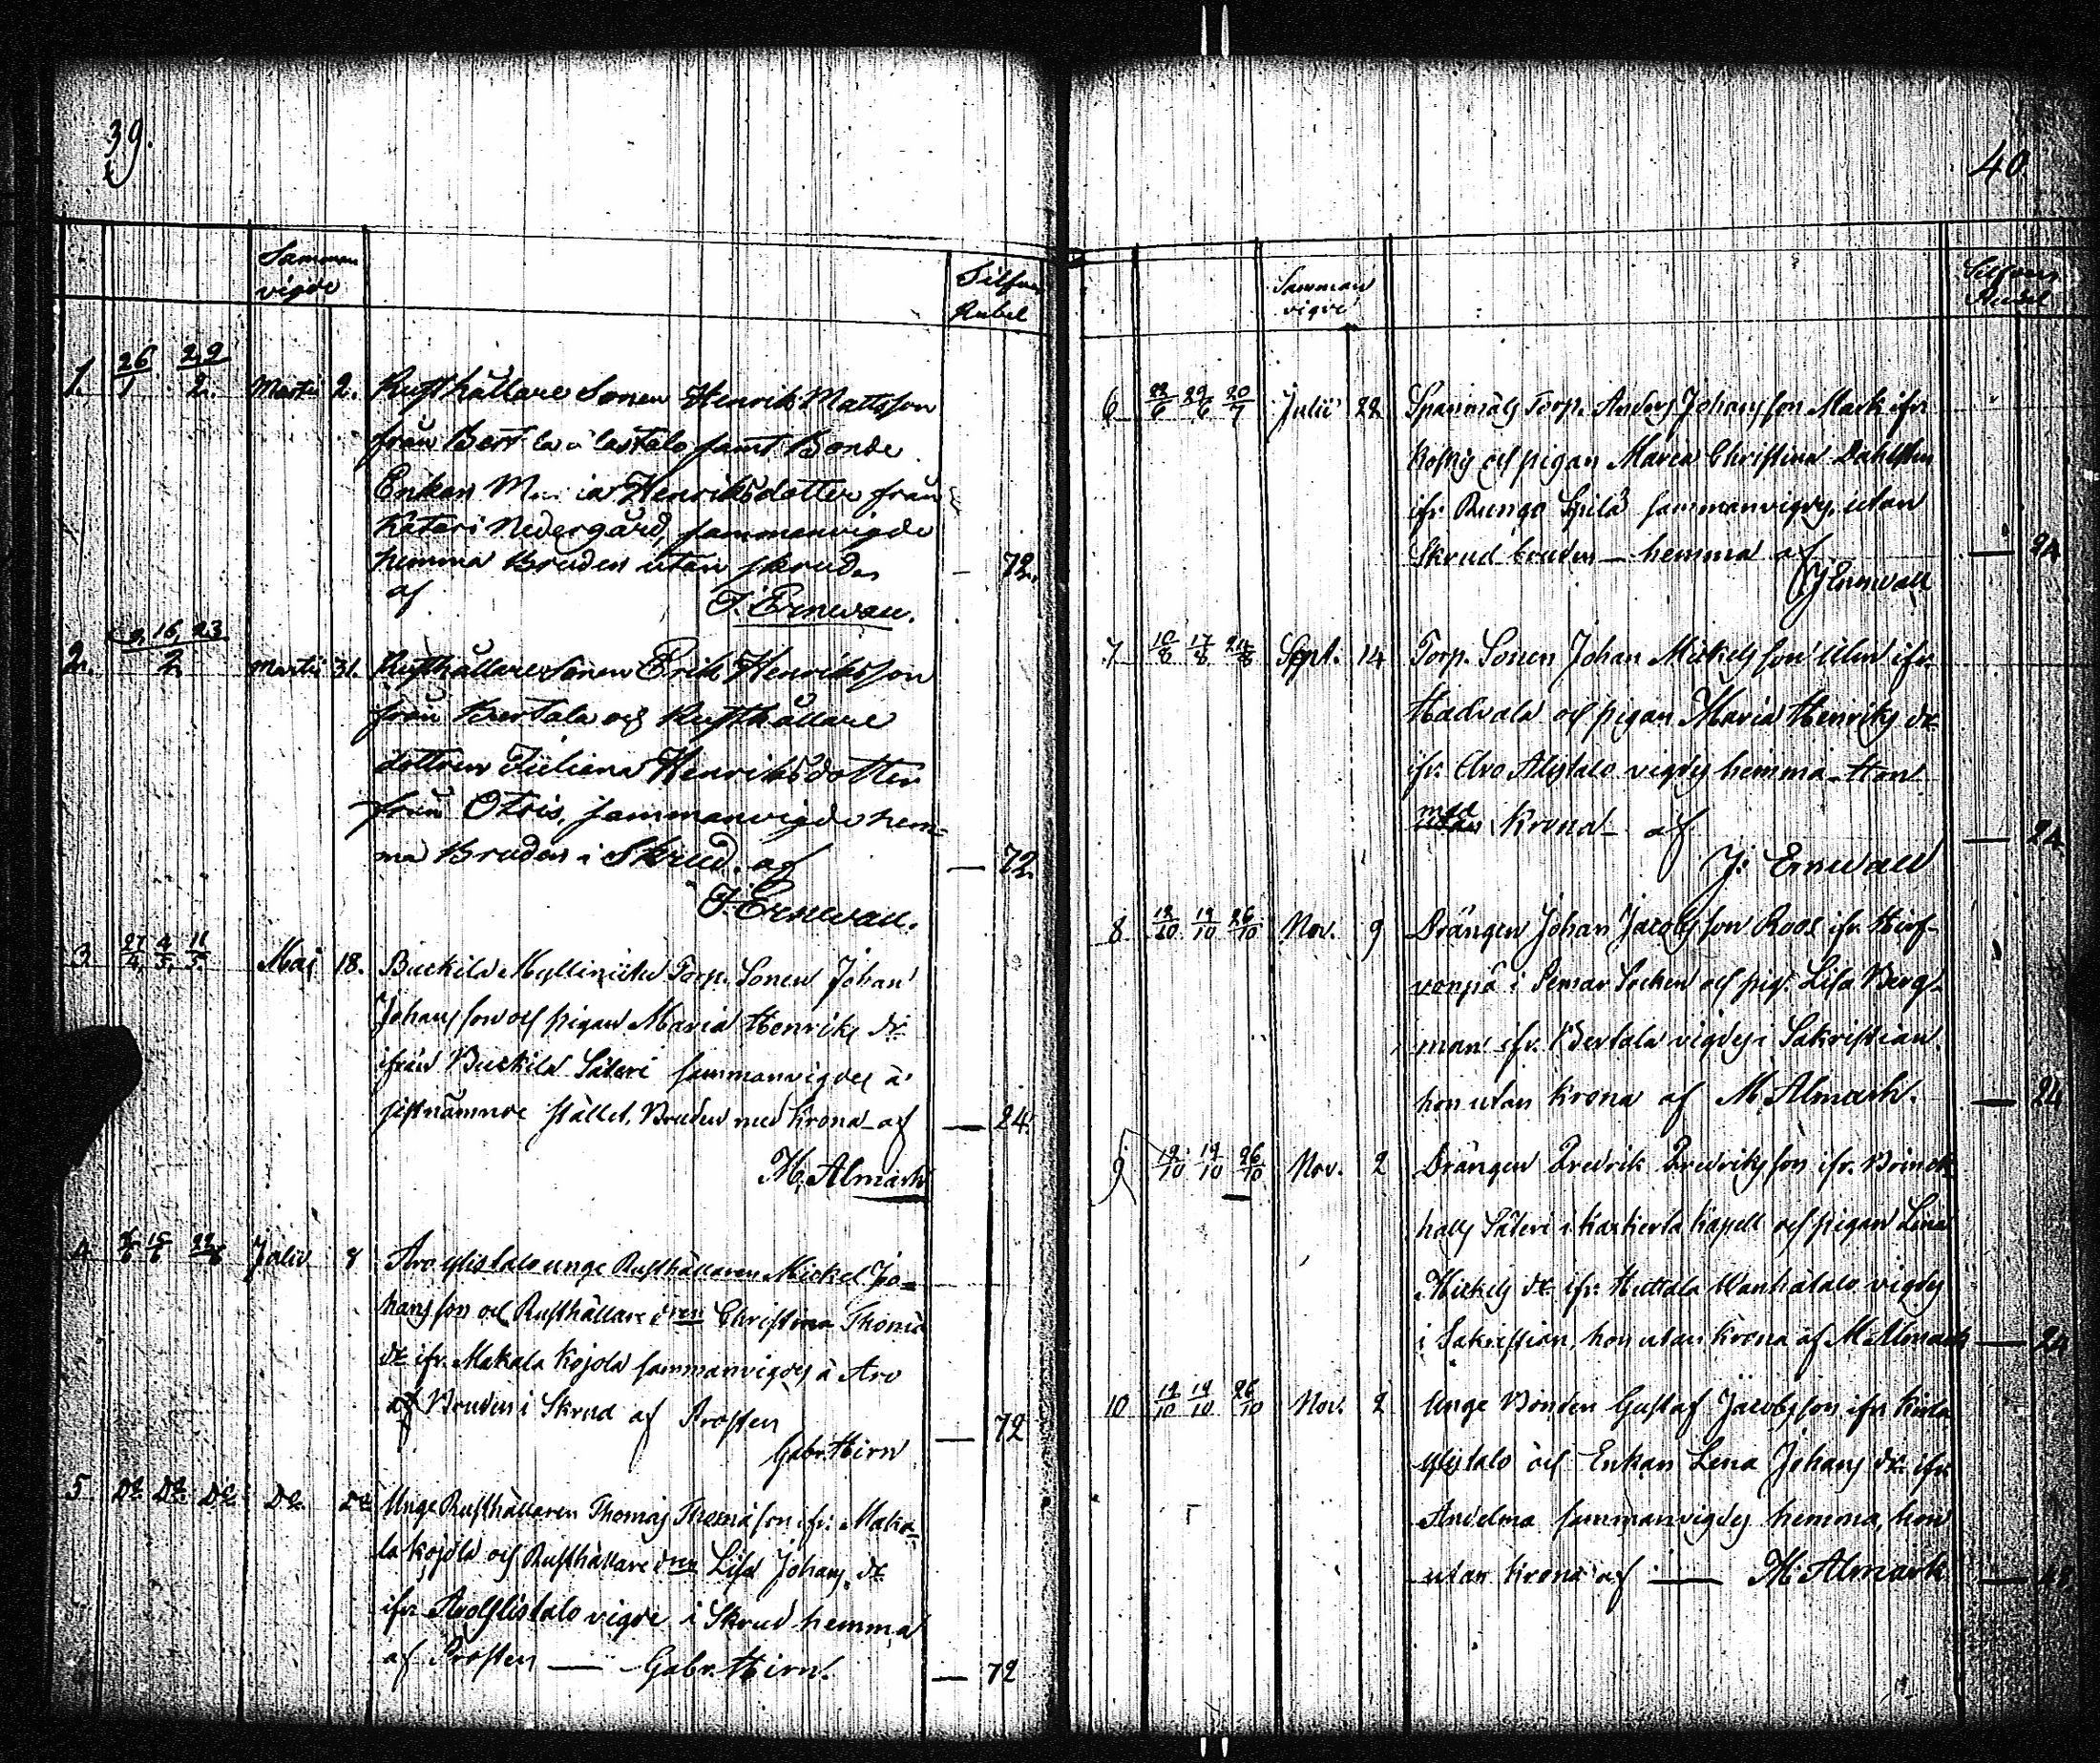 39.
Samman
vigde
Silfver
Rubel
1. 26/1 2.9/2. Martii 2. Rusthållare Sonen Henrik Mattsson
från Bert la lastalo samt Bonde
Enkan M ia Henriksdotter från
Kateri Nedergård, sammanvigde
hemma Bruden utan skrud
af — 72.
J. Ernwall.
2. 9. 16. 23/2 Martii 31. Rusthållare Sonen Erik Henriksson
från Bertala och Rusthållare
dottren Juliana Henriksdotter
från Otris, sammanvigde hem=
ma Bruden i Skrud. af — 72.
J. Ernwall.
3 27/4. 4/5. 11/5. Maj 18. Buckila Torp. Sonen Johan
Johansson och pigan Maria Henriks dr
ifrån Buckila Säteri sammanvigdes å
sistnämnde stället, Bruden med Krona af — 24.
M. Almark
4 15/6 22/6 Julii 8 Aro Ylistalo unge Rusthållaren Mickel Jo=
hansson och Rusthållare dren Christina Thomä
dr ifr. Makala Kojola sammanvigdes å Aro
af Bruden i Skrud af Prosten — 72
Gabr. Hirn
5 Do Do Do Do Do Unge Rusthållaren Thomas Thomäson ifr. Maka=
la Kojola och Rusthållare dren Lisa Johans dr
ifr. Aro Ylistalo vigde i Skrud hemma
af Prosten — Gabr. Hirn. — 72
40
Samman
vigde
Silfver
Rubel
6 22/6 29/6 20/7 Julii 22 Spanmåls Torp. Anders Johansson Mark ifr.
Koskis och pigan Maria Christina Dahlsten
ifr. Runga Spilä sammanvigdes utan
Skrud bruden — hemma af — 24
J Ernwall
7 10/8 17/8 24/8 Sept. 14 Torp. Sonen Johan Mickelsson Ulin ifr.
Hadvala och pigan Maria Henriks dr
ifr. Aro Alistalo vigdes hemma — Hon
med
utan Krona — af — 24
J: Ernwall
8 12/10 19/10 26/10 Nov. 9 Drängen Johan Jacobsson Roos ifr. Hirf-
vonpä i Pemar Socken och pig. Lisa Berg-
man ifr. Bertala vigdes i Sakristian
hon utan Krona af M. Almark. — 24
9 12/10 19/10 26/10 Nov. 2 Drängen Fredrik Fredriksson ifr. Brinck
halls Säteri i Kaxkerta Kapell och pigan Lena
Mickels dr ifr. Huttala Wanhatalo vigdes
i Sakristian, hon utan Krona af M Almark — 24
10 12/10 19/10 26/10 Nov. 2 Unge Bonden Gustaf Jacobsson ifr.
Ylistalo och Enkan Lena Johans dr ifr.
Andelma sammanvigdes hemma, hon
utan Krona af — M. Almark — 48